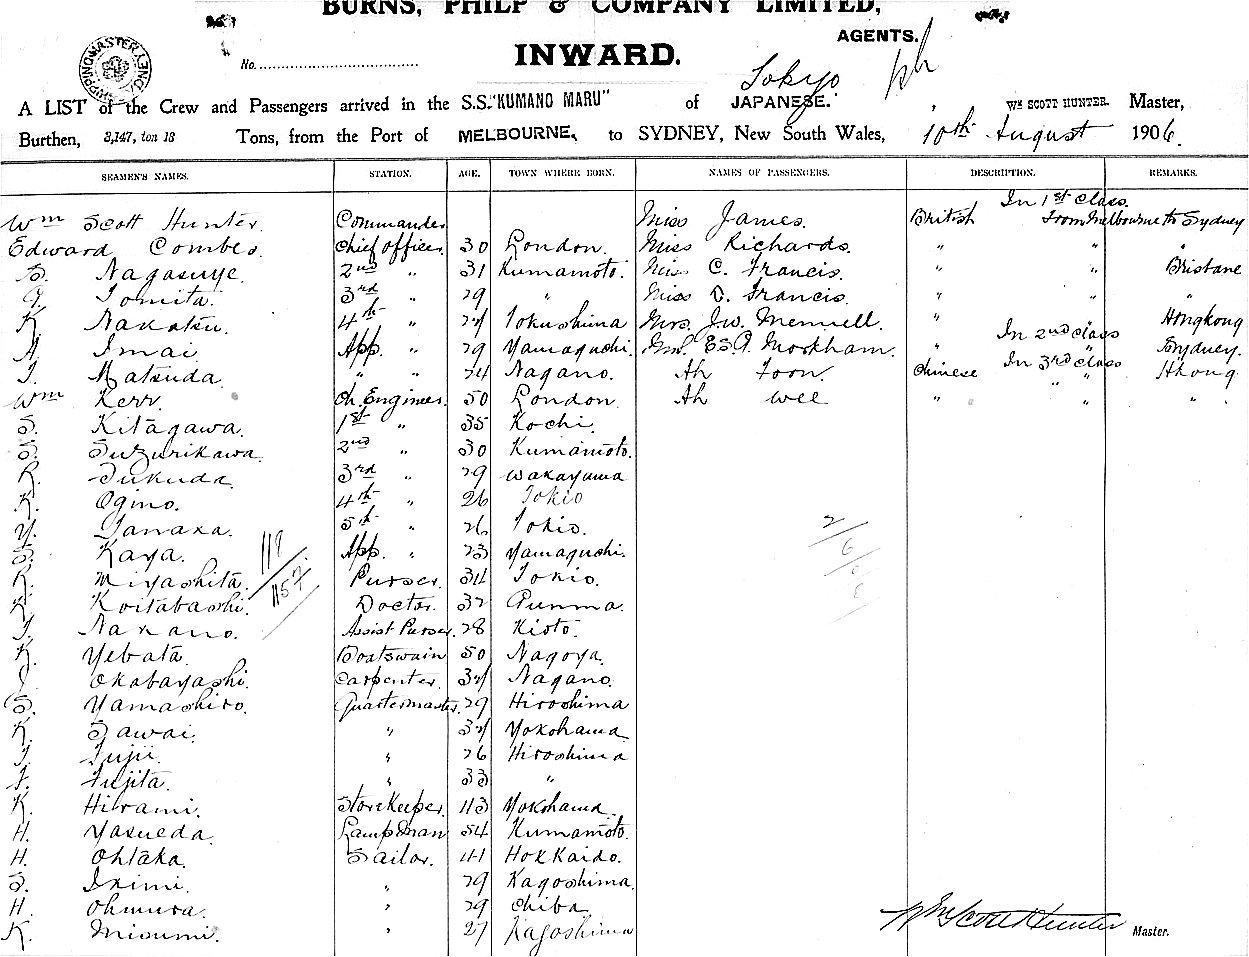 BURNS, PHILP & COMPANY LIMITED,
AGENTS.
INWARD.
No.
Tokyo
A LIST of the Crew and Passengers arrived in the S.S. "KUMANO MARU" of JAPANESE. , Wm SCOTT HUNTER. Master,
Burthen, 3,147, ton 13 Tons, from the Port of MELBOURNE, to SYDNEY, New South Wales, 10th August 1906.
SEAMEN'S NAMES. STATION. AGE. TOWN WHERE BORN. NAMES OF PASSENGERS. DESCRIPTION. REMARKS.
In 1st class.
Wm Scott Hunter. Commander Miss James. British From Melbourne to Sydney
Edward Combes. Chief officer. 30 London. Miss Richards. " " "
S. Nagasuye. 2nd " 31 Kumamoto. Miss C. Francis. " " Brisbane
G. Tomita. 3rd " 29 " Miss D. Francis. " " "
K. Nakatsu. 4th " 24 Tokushima Mrs. J.W. Mennell. " " Hongkong
In 2nd class
A. Imai. App. " 29 Yamaguchi. Mr. E.S.A. Morkham. " " Sydney.
In 3rd class
T. Matsuda. " " 24 Nagano. Ah Foon. Chinese " HKong.
Wm Kerr. Ch. Engineer. 50 London. Ah Wee " " "
S. Kitagawa. 1st " 35 Kochi.
S. Suzurikawa. 2nd " 30 Kumamoto.
R. Fukuda. 3rd " 29 Wakayama
K. Ogino. 4th " 26 Tokio
Y. Tanaka. 5th " 26 Tokio.
S. Kaya. App. " 23 Yamaguchi.
K. Miyashita. Purser. 34 Tokio.
K. Koitabashi. Doctor. 32 Gunma.
T. Nakano. Assist Purser. 28 Kioto.
K. Yebata. Boatswain 50 Nagoya.
J. Okabayashi. Carpenter. 34 Nagano.
S. Yamashiro. Quartermaster. 29 Hiroshima
K. Sawai. " 34 Yokohama.
T. Fujii. " 26 Hiroshima
F. Fujita. " 33 "
K. Hirami. StoreKeeper. 43 Yokohama.
H. Yasueda. Lampman 54 Kumamoto.
H. Ohtaka. Sailor. 41 Hokkaido.
S. Ikimi. " 29 Kagoshima.
H. Ohmura. " 29 Chiba.
K. Misumi. " 27 Kagoshima
Wm Scott Hunter Master.